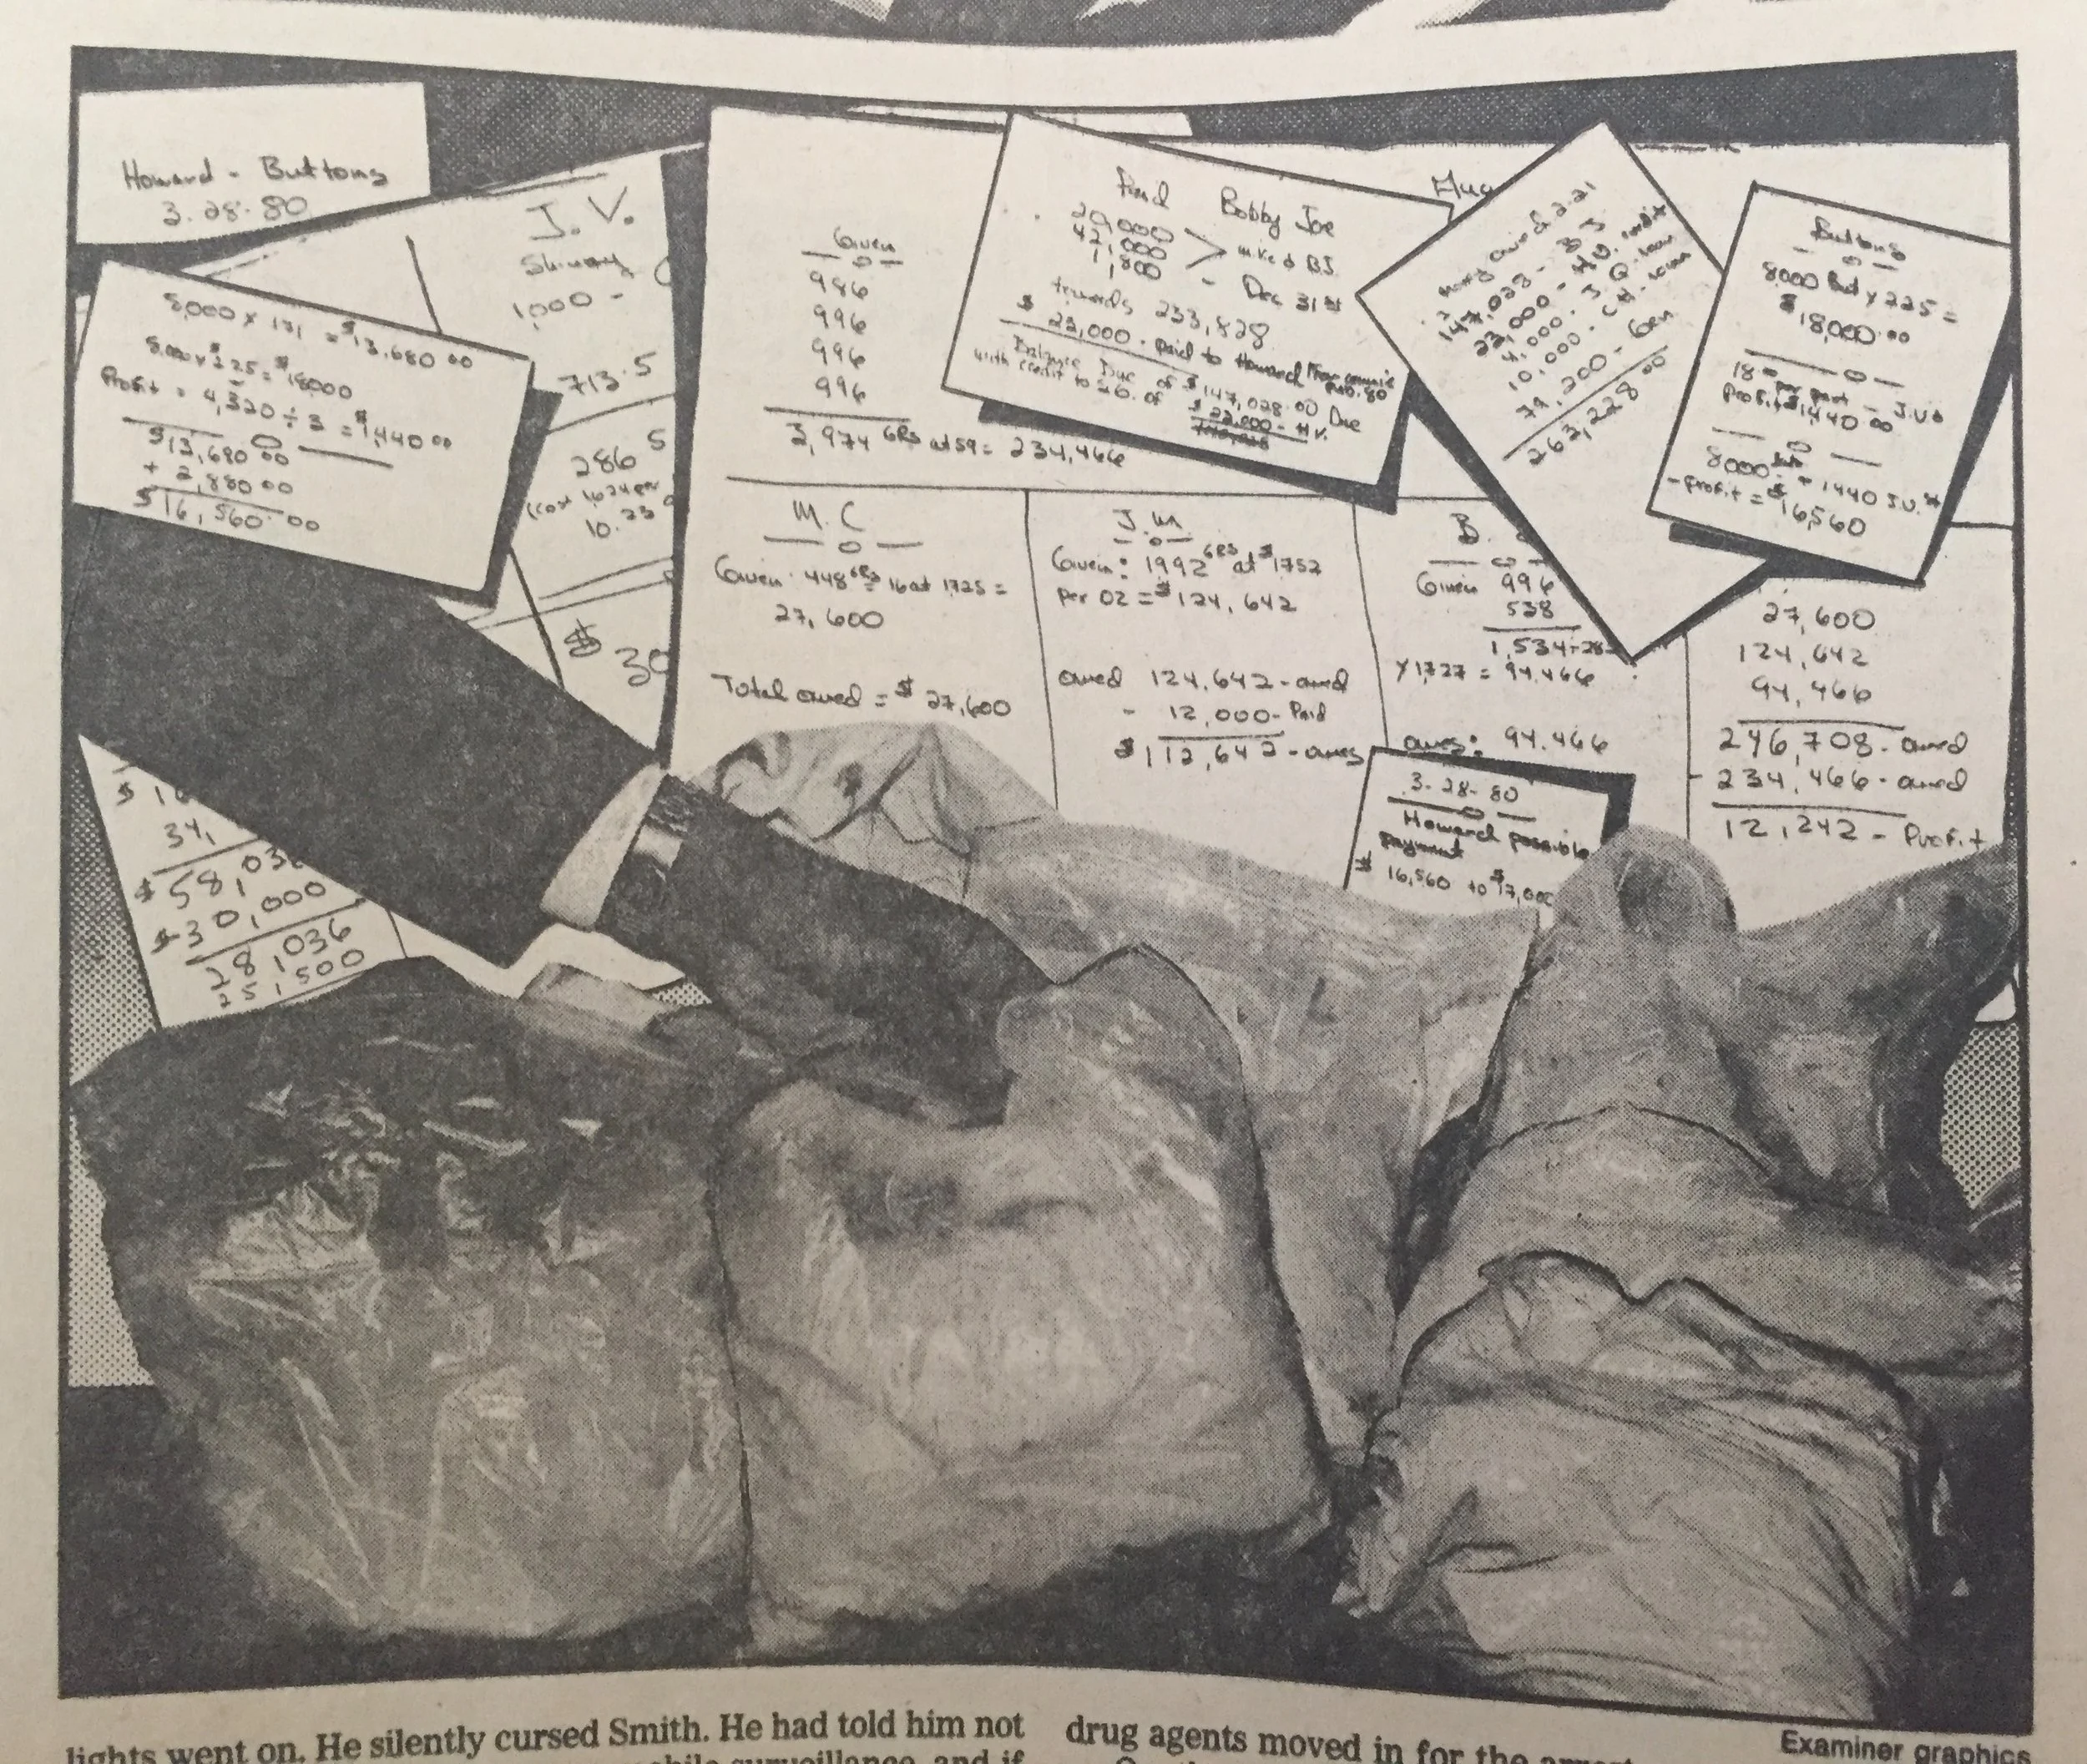 Howard - Buttons
3.28.80
8,000 x 171 = $13,680 00
8,000 x $2.25 = $18000
Profit = 4,320 ÷ 3 = $1,440 00
$13,680 00
+ 2,880 00
$16,560 00
J. V.
1,000 -
713.5
286 5
10.23
$ 30
34,
$58,036
$-30,000
28,036
25,500
Given
986
996
996
996
3,974 GRS at 59 = 234,466
Paid Bobby Joe
20,000
42,000
1,800
mike & BJ.
- Dec 31st
towards 233,828
$ 22,000 - paid to Howard
Balance Due of $147,028.00 Due
with credit to of
$ 22,000 - H.V.
money owed 2.21
147,028 - BJ
22,000 - H.V. credit
4,000 - J. Q. loan
10,000 - C.H. loan
79,200 - Gen
263,228 00
Buttons
8000 But x 225 =
$18,000.00
18 per part - J.V.
Profit $1,440 00
8000 + 1440 J.V.
- Profit = $16,560
M. C
Given 448 GRS 16 at 1725 =
27,600
Total owed = $27,600
J. M.
Given: 1992 GRS at $1752
per OZ = $124,642
owed 124,642 - owed
- 12,000 - Paid
$112,642 - owes
B.
Given 996
538
1,534 ÷ 28
x 1,727 = 94,466
owes: 94,466
27,600
124,642
94,466
246,708 - owed
- 234,466 - owed
12,242 - Profit
3-28-80
Howard possible
payment
$ 16,560 to $17,000
lights went on. He silently cursed Smith. He had told him not
drug agents moved in for the
Examiner graphics